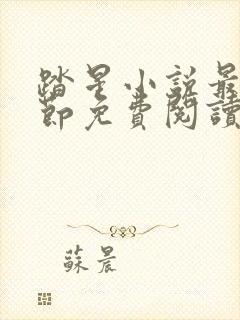 踏星小説最
節免費閱讀
蘇晨